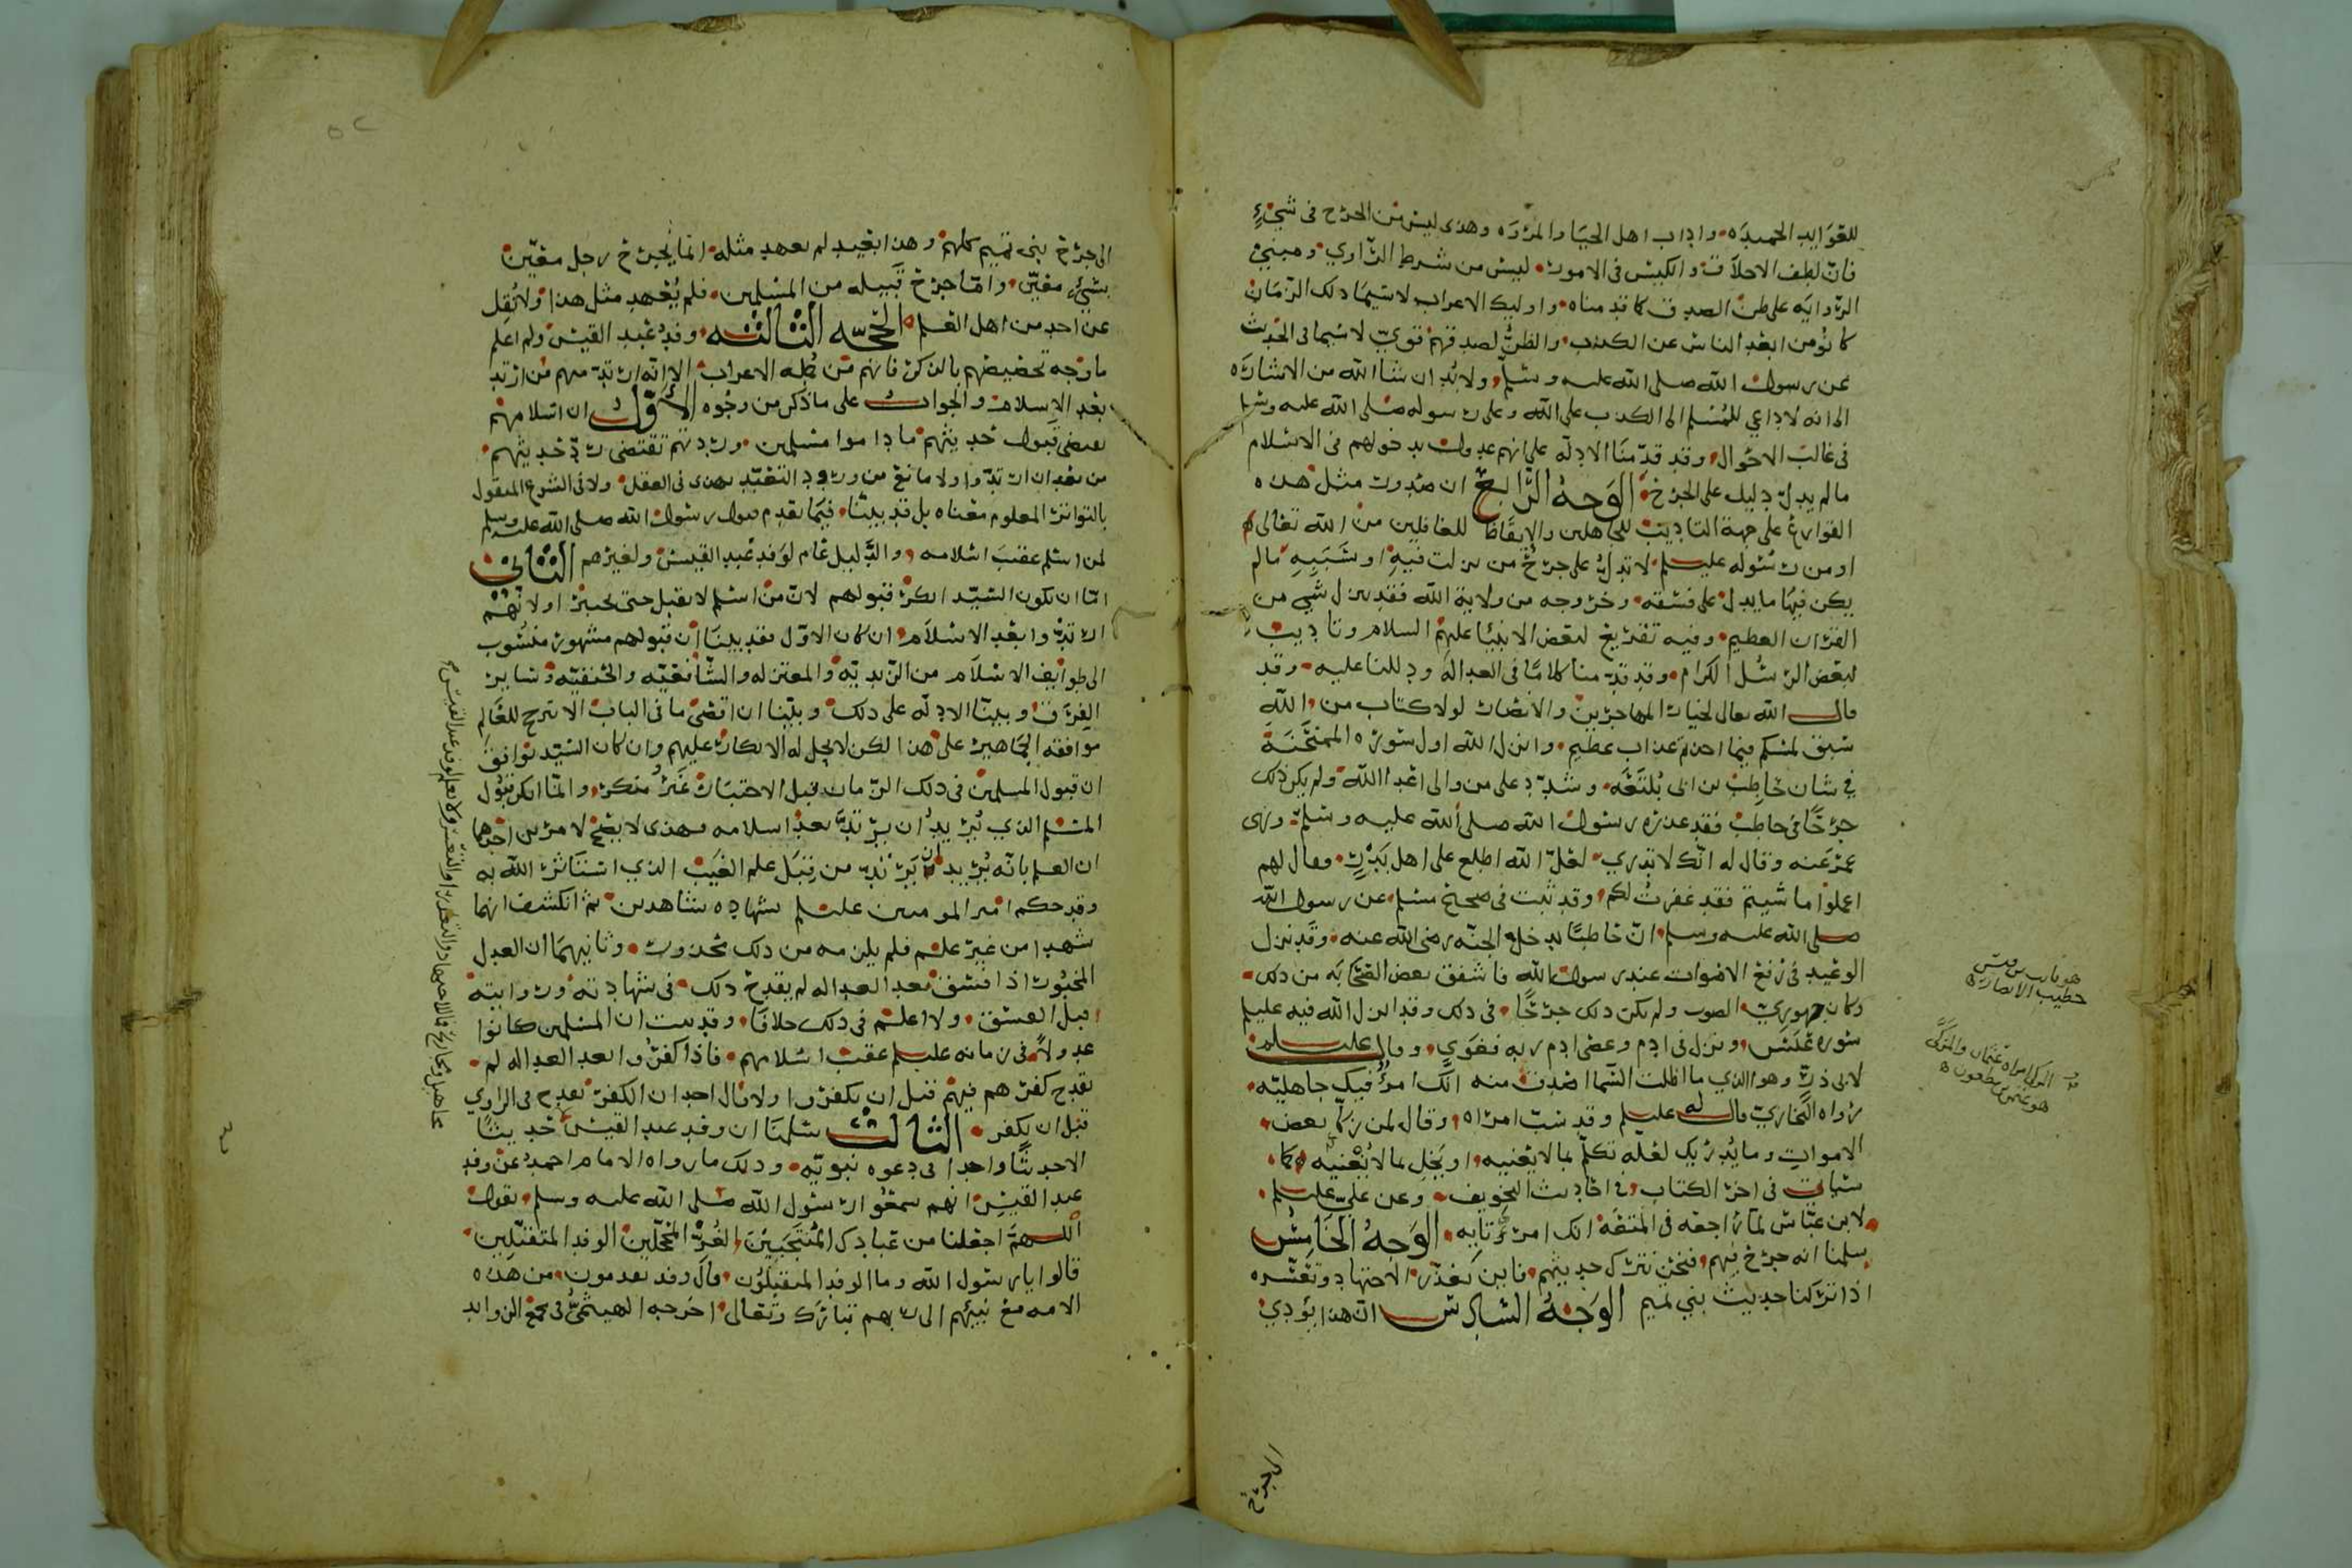 للعوايد الحميده وآداب اهل الحيا والمرؤه وهذى ليس من الجرح في شيء
فان لطف الاخلاق والكيس في الامور ليس من شرط الراوي ومبنى
الروايه على ظن الصدق كما قدمناه واوليك الاعراب لاسيما ذلك الزمان
كانوا من ابعد الناس عن الكذب والظن لصدقهم قوي لا سيما في الحديث
عن رسول الله صلى الله عليه وسلم ولابد ان شا الله من الاشاره
الى انه لا داعي للمسلم الى الكذب على الله وعلى رسوله صلى الله عليه وسلم
في غالب الاحوال وقد قدمنا الادلة على انهم عدول بدخولهم في الاسلام
مالم يدل دليل على الجرح الوجه الرابع ان صدور مثل هذه
القوارع على جهة التاديب للجاهلين والايقاظ للغافلين من الله تعالى
او من رسوله عليلسلم لا تدل على جرح من نزلت فيه او سببه مالم
يكن فيها ما يدل على فسقه وخروجه من ولاية الله فقد نزل شي من
القران العظيم وفيه تقريع لبعض الانبيا عليهم السلام وتاديب
لبعض الرسل الكرام وقد قدمنا كلاما في العداله ودللنا عليه وقد
قال الله تعالى لخيار المهاجرين والانصار لولا كتاب من الله
سبق لمسكم فيما اخذتم عذاب عظيم وانزل الله اول سورة الممتحنة
في شان حاطب بن ابي بلتعه وشدد على من والى اعدا الله ولم يكن ذلك
جرحا في حاطب فقد عذره رسول الله صلى الله عليه وسلم ونهى
عمر عنه وقال له انك لا تدري لعل الله اطلع على اهل بدر فقال لهم
اعملوا ما شيتم فقد غفرت لكم وقد ثبت في صحيح مسلم عن رسول الله
صلى الله عليه وسلم ان حاطبا يدخل الجنه رضي الله عنه وقد نزل
الوعيد في رفع الاصوات عند رسول الله فاشفق بعض الصحابه من ذلك
وكان جهوري الصوت ولم يكن ذلك جرحا في ذلك وقد انزل الله فيه عليلم
سوره عبس ونزل في ادم وعصى ادم ربه فغوى وقال عليلسلم
لابي ذر وهو الذي ما اظلت السما اصدق منه انك امرؤ فيك جاهليه
رواه البخاري وقال له عليلسلم وقد سب امراه وقال لمن زكى بعض
الاموات وما يدريك لعله تكلم بما لا يعنيه او بخل بما لا يغنيه كما
سياتي في اخر الكتاب في احاديث التخويف وعن علي عليلسلم
لابن عباس لما راجعه في المتعه انك امرؤ تايه الوجه الخامس
سلمنا انه جرح فيهم فنحن نترك حديثهم فاين تعذر الاجتهاد وتعسره
اذا تركنا حديث بني تميم الوجه السادس ان هذا يؤدي
هو ثابت بن قيس
خطيب الانصار
هو عثمن بن مظعون
الى جرح
الى جرح بني تميم كلهم وهذا بعيد لم يعهد مثله انما يجرح رجل معين
بشيء معين واما جرح قبيله من المسلمين فلم يعهد مثل هذا ولا نقل
عن احد من اهل العلم الحجه الثالثه وفد عبد القيس ولم اعلم
ما وجه تخصيصهم بالذكر فانهم من جمله الاعراب الا انه ارتد منهم من ارتد
بعد الاسلام والجواب على ما ذكر من وجوه الاول ان اسلامهم
يقتضي قبول حديثهم ما داموا مسلمين وردتهم تقتضي رد حديثهم
من بعد ان ارتدوا ولا مانع من ورود التعبد بهذى في العقل ولا في الشرع المنقول
بالتواتر المعلوم معناه بل قد بينا فيما تقدم قبول رسول الله صلى الله عليه وسلم
لمن اسلم عقيب اسلامه والدليل عام لوفد عبد القيس ولغيرهم الثاني
اما ان يكون السيد انكر قبولهم لان من اسلم لا يقبل حتى يختبر او لانهم
ارتدوا بعد الاسلام ان كان الاول فقد بينا ان قبولهم مشهور منسوب
الى طوايف الاسلام من الزيديه والمعتزله والشافعيه والحنفيه وساير
الفرق وبينا الادله على ذلك وبينا ان اقصى ما في الباب الا يترجح للعالم
موافقه الجماهير على هذا لكن لا يحل له الانكار عليهم وان كان السيد يوافق
ان قبول المسلمين في ذلك الزمان قبل الاختبار غير منكر وانما انكر قبول
المسلم الذي يريد ان يرتد بعد اسلامه فهذى لا يصح لامرين احدهما
ان العلم بانه يريد ان يرتد من قبل علم الغيب الذي استاثر الله به
وقد حكم امير المومنين عليلسلم بشهاده شاهدين ثم انكشف انهما
شهدا من غير علم فلم يلزمه من ذلك محذور وثانيهما ان العدل
المخبور اذا فسق بعد العداله لم يقدح ذلك في شهادته وروايته
قبل الفسق ولا اعلم في ذلك خلافا وقد ثبت ان المسلمين كانوا
عدولا في زمانه عليلسلم عقب اسلامهم فاذا كفروا بعد العداله لم
يقدح كفرهم فيهم قبل ان يكفروا ولا قال احد ان الكفر يقدح في الراوي
قبل ان يكفر الثالث سلمنا ان وفد عبد القيس حديثا
الاحديثا واحدا في دعوه نبويه وذلك ما رواه الامام احمد عن وفد
عبد القيس انهم سمعوا رسول الله صلى الله عليه وسلم يقول
اللهم اجعلنا من عبادك المنتجبين الغر المحجلين الوفد المتقبلين
قالوا يا رسول الله وما الوفد المتقبلون قال وفد يقدمون من هذه
الامه مع نبيهم الى ربهم تبارك وتعالى اخرجه الهيثمي في مجمع الزوايد